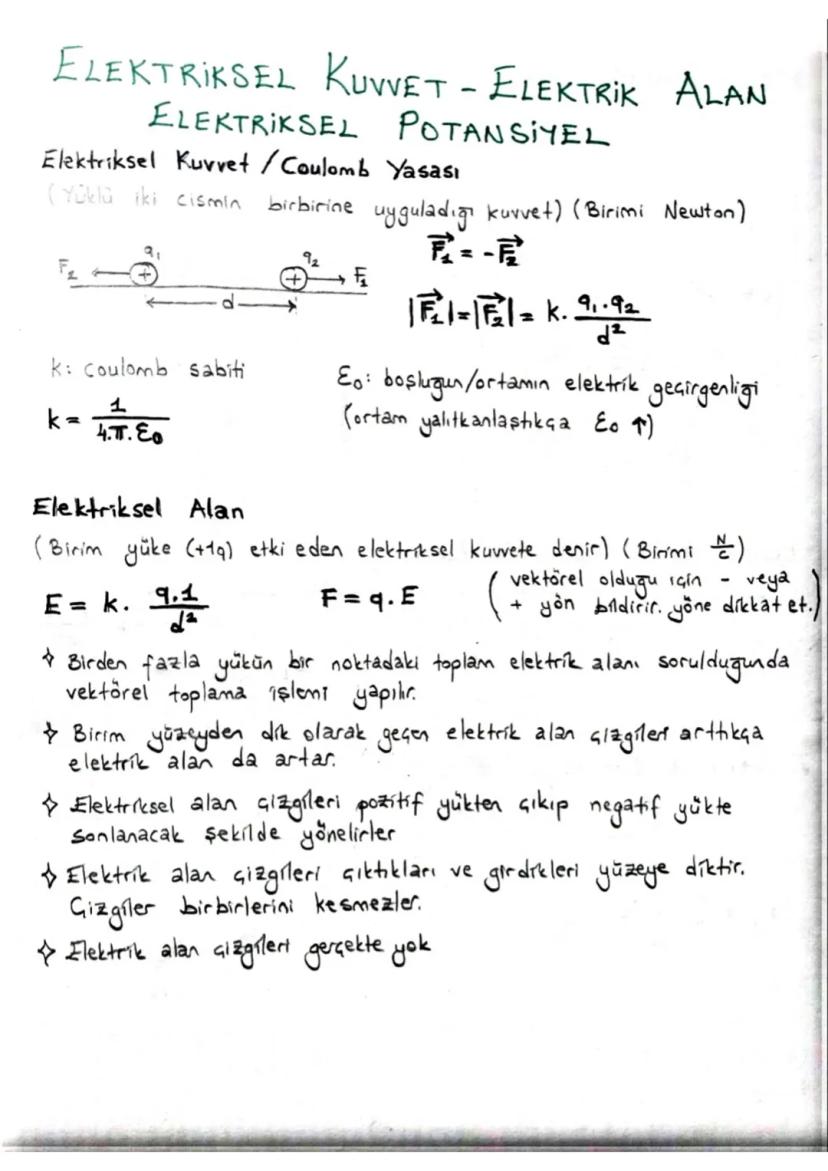 ELEKTRİKSEL KUVVET - ELEKTRİK ALAN
ELEKTRİKSEL POTANSİYEL
Elektriksel Kuvvet / Coulomb Yasası
(Yüklü iki cismin birbirine uyguladığı kuvvet) (Birimi Newton)
F₂ q₁ + q₂ + F₁
d
F₁ = -F₂
|F₁| = |F₂| = k. q₁.q₂ / d²
k: coulomb sabiti
k = 1 / 4.π.ε₀
ε₀: boşluğun/ortamın elektrik geçirgenliği
(ortam yalıtkanlaştıkça ε₀ ↑)
Elektriksel Alan
(Birim yüke (+1q) etki eden elektriksel kuvvete denir) (Birimi N/C)
E = k. q.1 / d²
F = q.E
(vektörel olduğu için - veya
+ yön bildirir. yöne dikkat et.)
✧ Birden fazla yükün bir noktadaki toplam elektrik alanı sorulduğunda
vektörel toplama işlemi yapılır.
✧ Birim yüzeyden dik olarak geçen elektrik alan çizgileri arttıkça
elektrik alan da artar.
✧ Elektriksel alan çizgileri pozitif yükten çıkıp negatif yükte
sonlanacak şekilde yönelirler
✧ Elektrik alan çizgileri çıktıkları ve girdikleri yüzeye diktir.
Çizgiler birbirlerini kesmezler.
✧ Elektrik alan çizgileri gerçekte yok